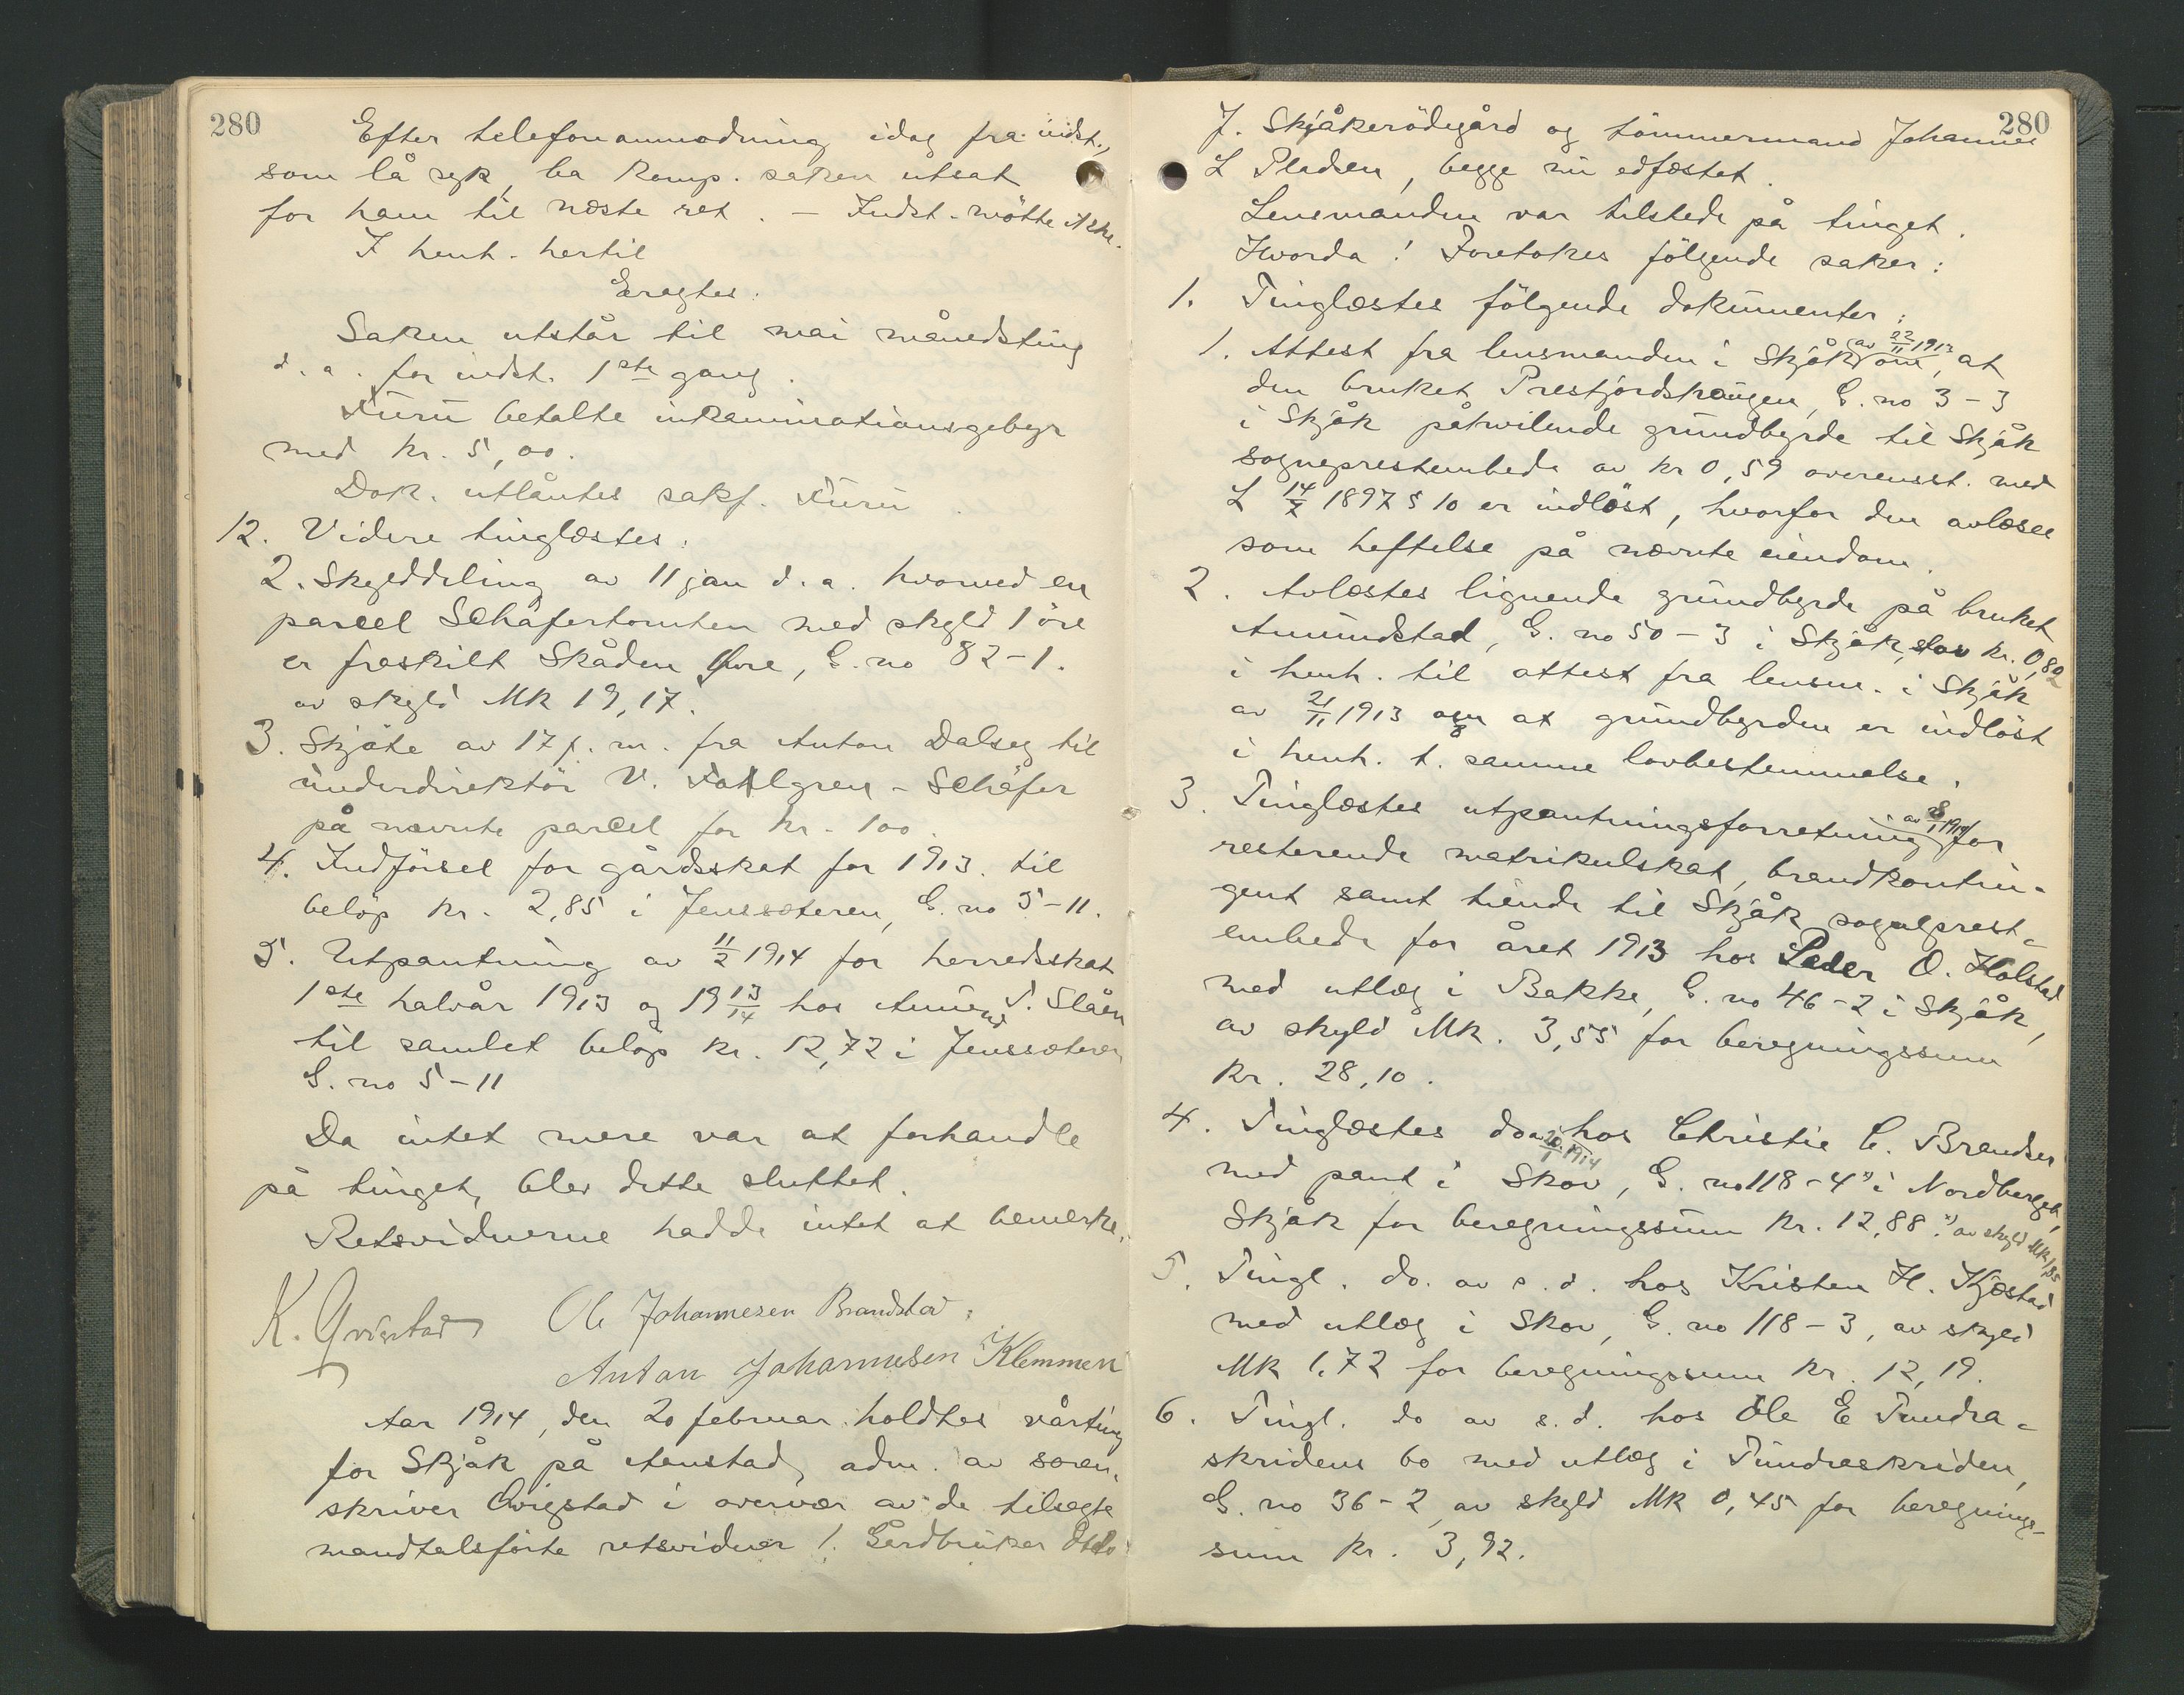 280
Efter telefonanmodning idag fra indst.,
som lå syk, ba komp. saken utsat
for ham til næste ret. - Indst. mötte ikke.
I henh. hertil
Eragtes:
Saken utstår til mai månedsting
d. a. for indst. 1ste gang.
Furu betalte inkaminationsgebyr
med kr. 5,00.
Dok. utlåntes sakf. Furu.
12. Videre tinglæstes:
2. Skylddeling av 11 jan d. a. hvorved en
parcel Schäfertomten med skyld 1 öre
er fraskilt Skåden Övre, G. no 82-1.
av skyld Mk 19,17.
3. Skjöte av 17 f. m. fra Anton Dalseg til
underdirektör V. Fahlgren-Schäfer
på nævnte parcel for kr. 100.
4. Indförsel for gårdsskat for 1913 til
belöp kr. 2,85 i Jenssæteren, G. no 5-11.
5. Utpantning av 11/2 1914 for herredsskat
1ste halvår 1913 og 19 13/14 hos Amund T. Slåen
til samlet belöp kr. 12,72 i Jenssæteren
G. no 5-11
Da intet mere var at forhandle
på tinget, blev dette sluttet.
Retsvidnerne hadde intet at bemerke.
K. Qvigstad Ole Johannesen Brandstad.
Anton Johannesen Klemmen
Aar 1914, den 20 februar holdtes vårting
for Skjåk på Aamstad, adm. av soren-
skriver Qvigstad i overvær av de tilsagte
mandtalsförte retsvidner 1. Gårdbruker
280
J. Skjåkerödegård og tömmermand Johannes
L Pladsen, begge nu edfæstet.
Lensmanden var tilstede på tinget.
Hvorda! Foretokes fölgende saker:
1. Tinglæstes fölgende dokumenter:
1. Attest fra lensmanden i Skjåk av 22/11 1913 om, at
den bruket Prestjordshaugen, G. no 3-3
i Skjåk påhvilende grundbyrde til Skjåk
sogneprestembede av kr 0,59 overensst. med
L 14/7 1897 § 10 er indlöst, hvorfor den avlæses
som heftelse på nævnte eiendom.
2. Avlæstes lignende grundbyrde på bruket
Amundstad, G. no 50-3 i Skjåk, stor kr. 0,80
i henh. til attest fra lensm. i Skjåk
av 21/11 1913 om at grundbyrden er indlöst
i henh. t. samme lovbestemmelse.
3. Tinglæstes utpantningsforretning av 8/1 1914 for
resterende matrikulskat, brandkontin-
gent samt tiende til Skjåk sogneprest-
embede for året 1913 hos Peder O. Holstad
med utlæg i Bakke, G. no 46-2 i Skjåk,
av skyld Mk. 3,55 for beregningssum
kr. 28,10.
4. Tinglæstes do av 20/1 1914 hos Christie C. Brandser
med pant i Skov, G. no 118-4 x) i Nordberget,
Skjåk for beregningssum kr. 12,88. x) av skyld Mk 1,85
5. Tingl. do. av s. d. hos Kristen H. Kjæstad
med utlæg i Skov, G. no 118-3, av skyld
Mk 1.72 for beregningssum kr. 12,19.
6. Tingl. do av s. d. hos Ole E Tundra-
skridens bo med utlæg i Tundraskriden,
G. no 36-2, av skyld Mk 0,45 for beregnings-
sum kr. 3,92.